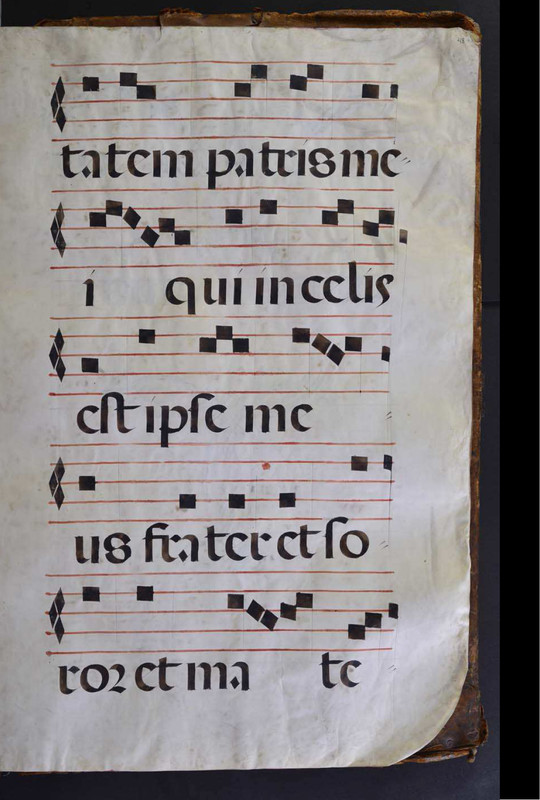 tatem patris me
i qui in celis
est ipse me
us frater et so
ror et ma te